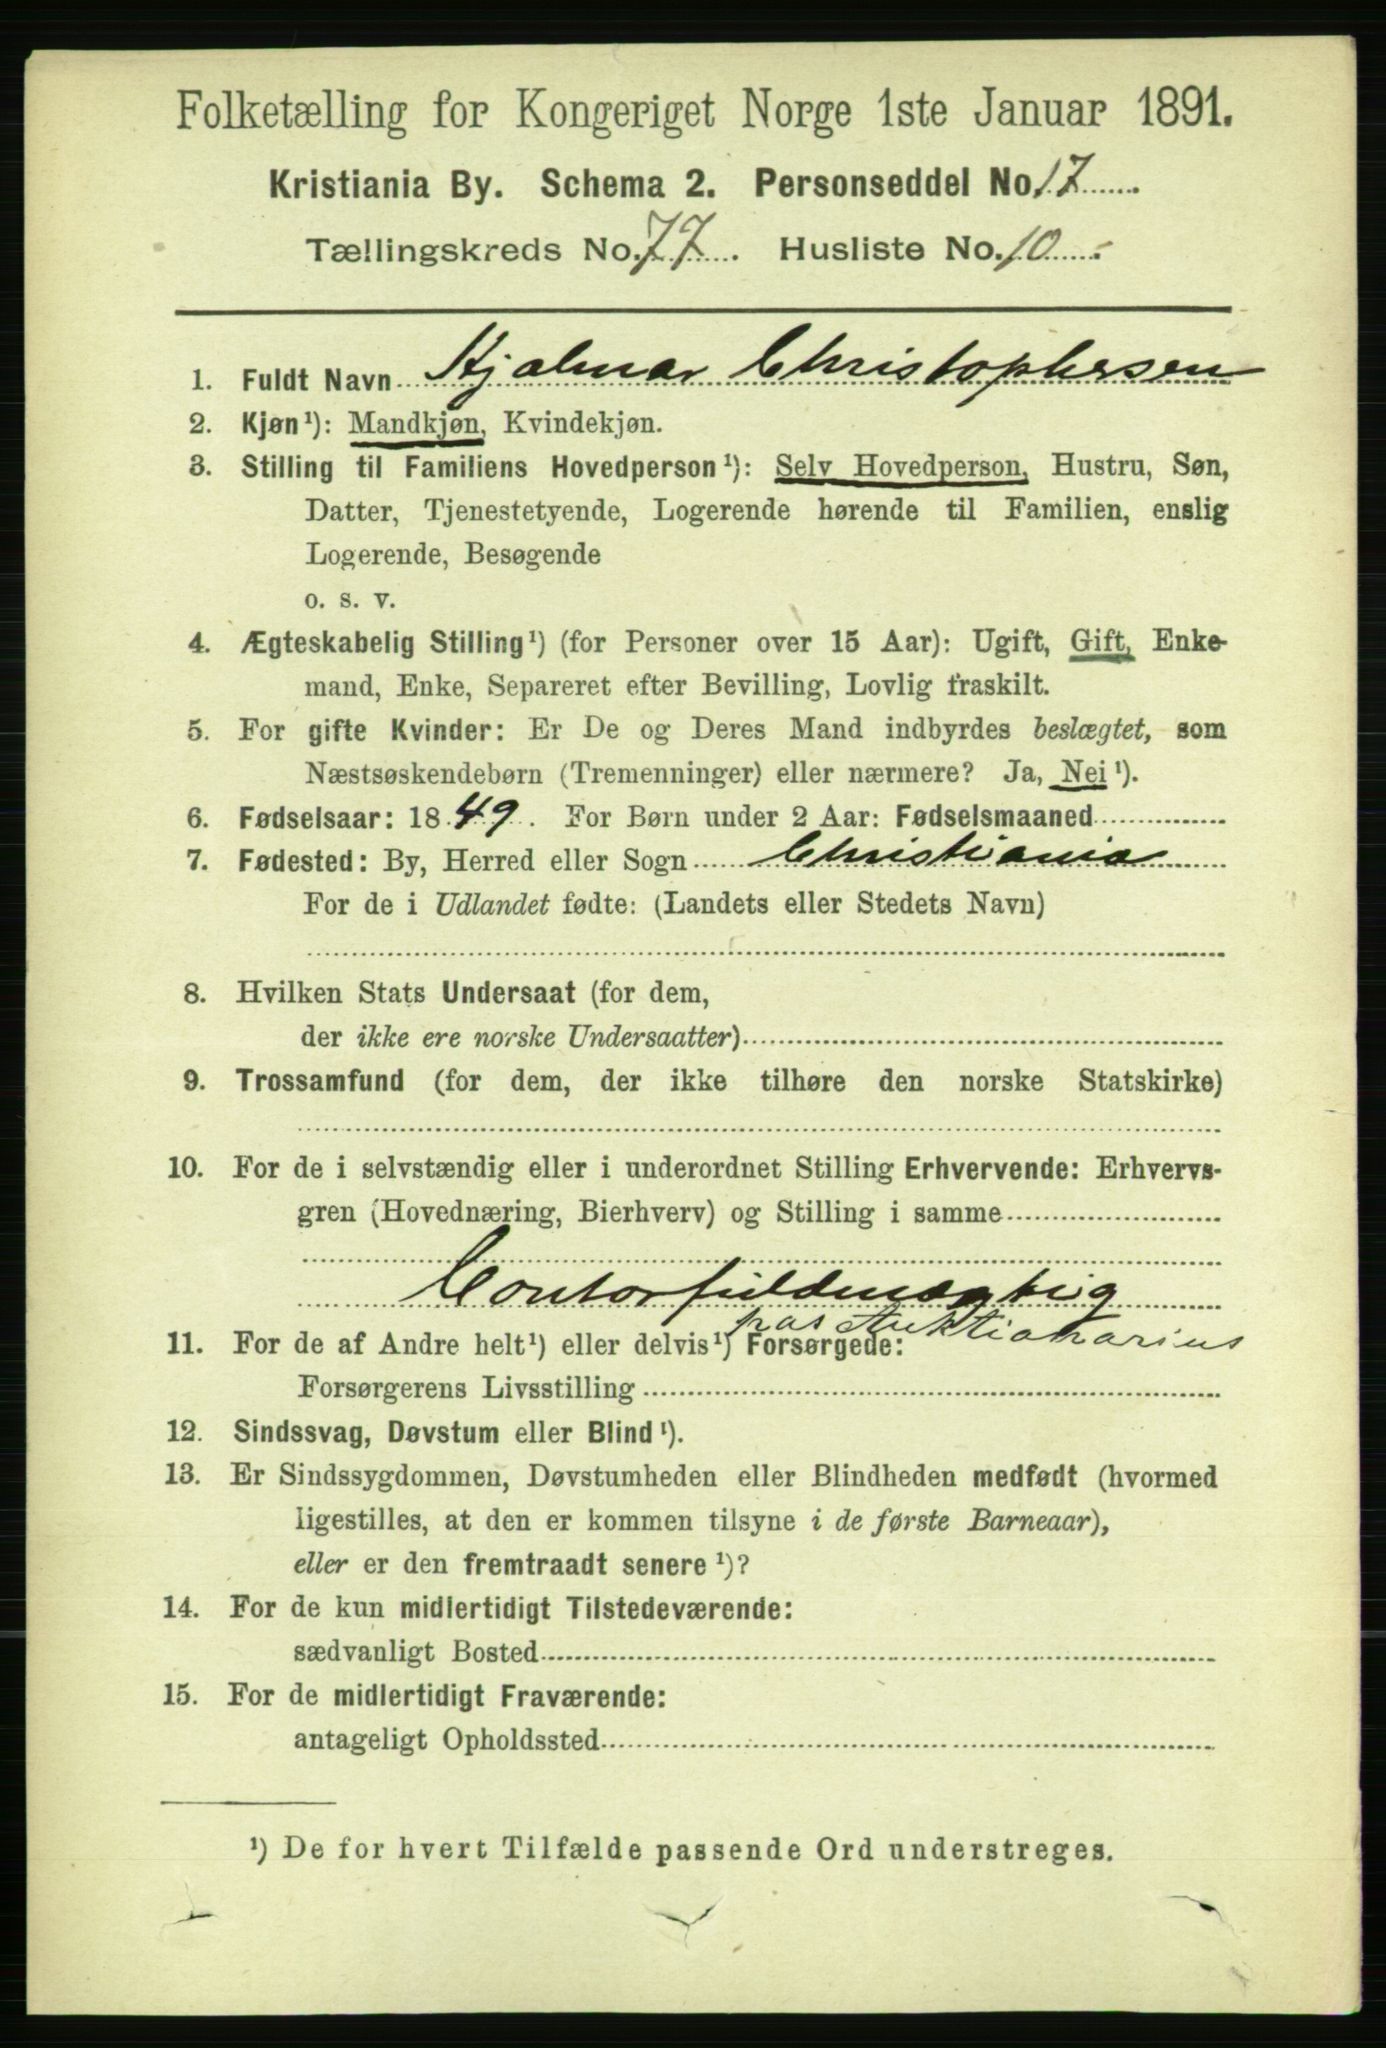 Folketælling for Kongeriget Norge 1ste Januar 1891.
Kristiania By. Schema 2. Personseddel No. 17
Tællingskreds No. 77. Husliste No. 10
1. Fuldt Navn Hjalmar Christophersen
2. Kjøn¹): Mandkjøn, Kvindekjøn.
3. Stilling til Familiens Hovedperson¹): Selv Hovedperson, Hustru, Søn,
Datter, Tjenestetyende, Logerende hørende til Familien, enslig
Logerende, Besøgende
o. s. v.
4. Ægteskabelig Stilling¹) (for Personer over 15 Aar): Ugift, Gift, Enke-
mand, Enke, Separeret efter Bevilling, Lovlig fraskilt.
5. For gifte Kvinder: Er De og Deres Mand indbyrdes beslægtet, som
Næstsøskendebørn (Tremenninger) eller nærmere? Ja, Nei¹).
6. Fødselsaar: 1849. For Børn under 2 Aar: Fødselsmaaned
7. Fødested: By, Herred eller Sogn Christiania
For de i Udlandet fødte: (Landets eller Stedets Navn)
8. Hvilken Stats Undersaat (for dem,
der ikke ere norske Undersaatter)
9. Trossamfund (for dem, der ikke tilhøre den norske Statskirke)
10. For de i selvstændig eller i underordnet Stilling Erhvervende: Erhvervs-
gren (Hovednæring, Bierhverv) og Stilling i samme
Contorfuldmægtig
hos Auktionarius
11. For de af Andre helt¹) eller delvis¹) Forsørgede:
Forsørgerens Livsstilling
12. Sindssvag, Døvstum eller Blind¹).
13. Er Sindssygdommen, Døvstumheden eller Blindheden medfødt (hvormed
ligestilles, at den er kommen tilsyne i de første Barneaar),
eller er den fremtraadt senere¹)?
14. For de kun midlertidigt Tilstedeværende:
sædvanligt Bosted
15. For de midlertidigt Fraværende:
antageligt Opholdssted
¹) De for hvert Tilfælde passende Ord understreges.